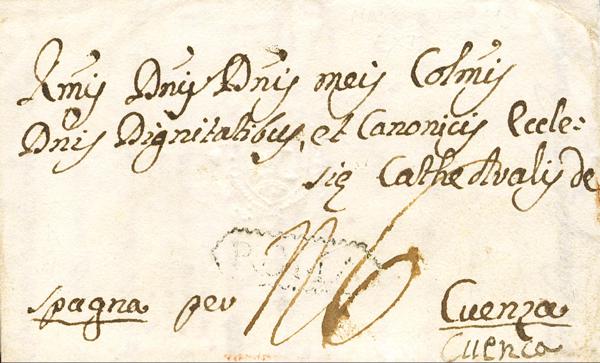 Rmis Dnis Dnis meis Colmis
Dnis Dignitatibus, et Canonicis Eccle:
się Cathedralis de
ROMA
spagna per Cuenza
Cuenca